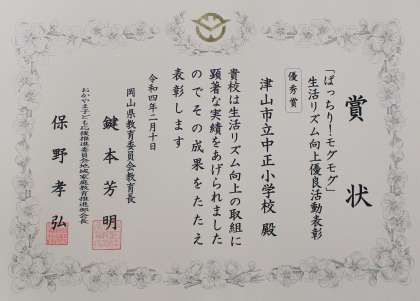 賞状
「ぱっちり!モグモグ」
生活リズム向上優良活動表彰
優秀賞
津山市立中正小学校 殿
貴校は生活リズム向上の取組に
顕著な実績をあげられました
のでその成果をたたえ
表彰します
令和四年二月十日
岡山県教育委員会教育長
鍵本芳明
おかやま子ども応援推進委員会地域家庭教育推進部会長
保野孝弘